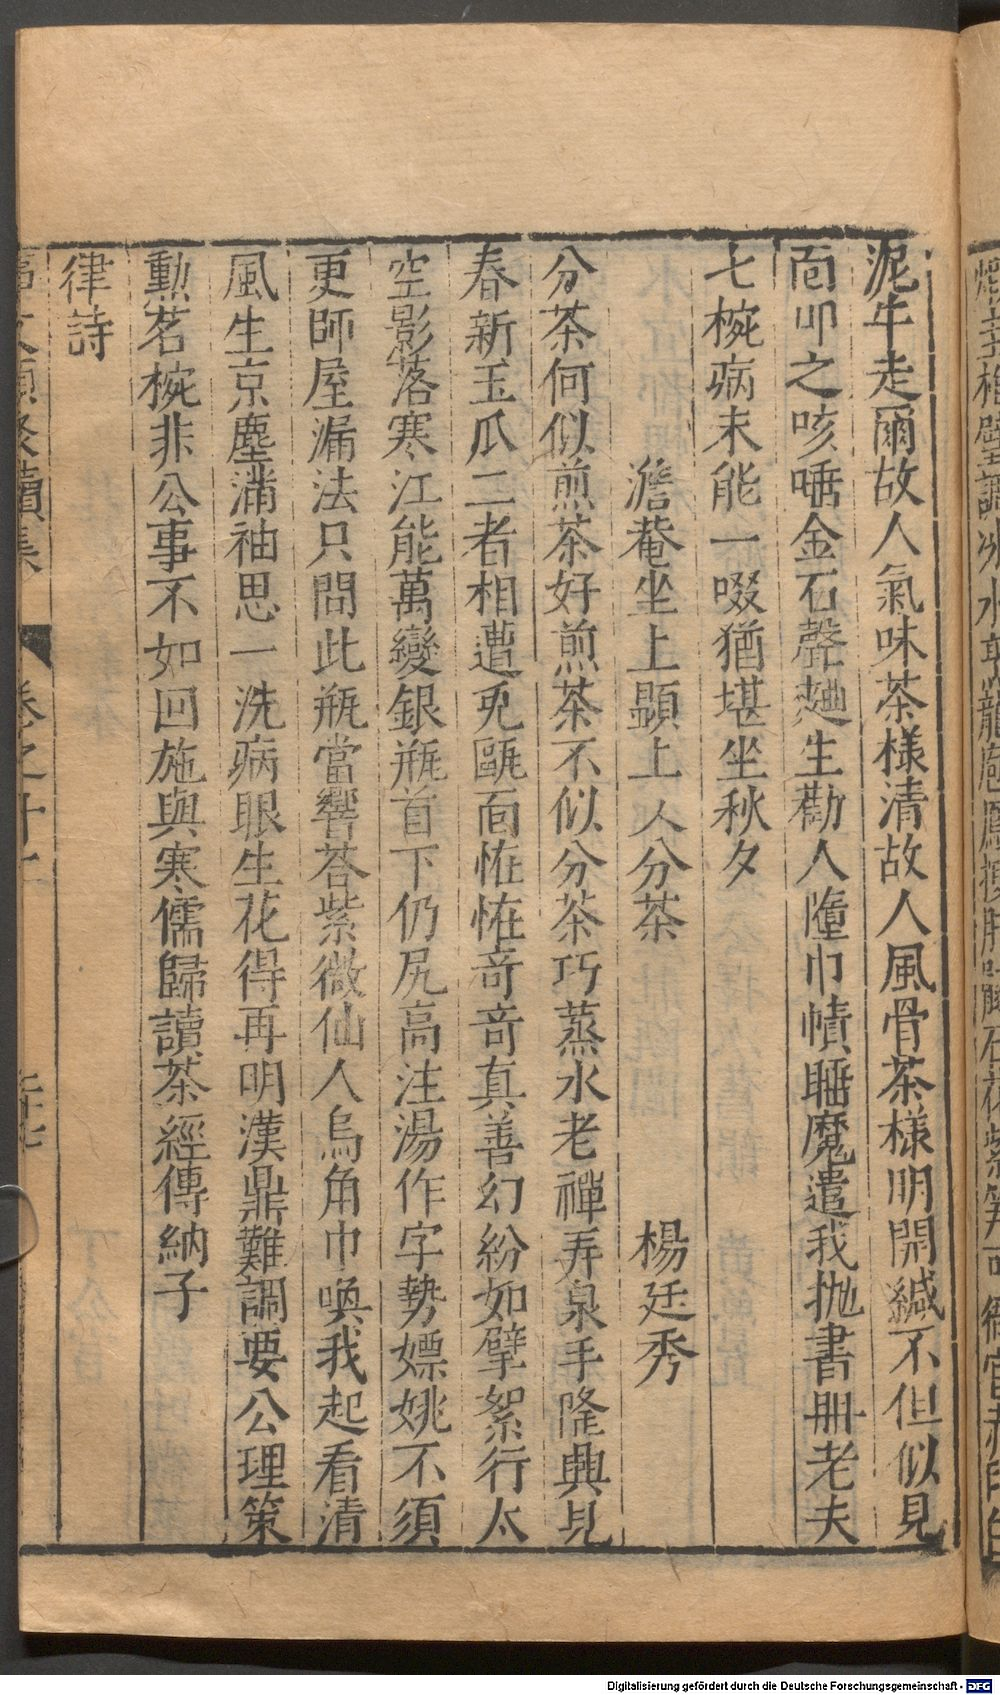 泥牛走爾故人氣味茶樣清故人風骨茶樣明開緘不但似見
面叩之咳唾金石聲麹生勸人墮巾幘睡魔遣我抛書冊老夫
七椀病未能一啜猶堪坐秋夕
澹菴坐上顯上人分茶 楊廷秀
分茶何似煎茶好煎茶不似分茶巧蒸水老禪弄泉手隆興見
春新玉爪二者相遭兎甌面恠恠奇奇真善幻紛如擘絮行太
空影落寒江能萬變銀瓶首下仍尻高注湯作字勢嫖姚不須
更師屋漏法只問此瓶當響荅紫微仙人烏角巾喚我起看清
風生京塵滿袖思一洗病眼生花得再明漢鼎難調要公理策
勲茗椀非公事不如回施與寒儒歸讀茶經傳衲子
律詩
事文類聚續集 卷之十二
Digitalisierung gefördert durch die Deutsche Forschungsgemeinschaft - DFG